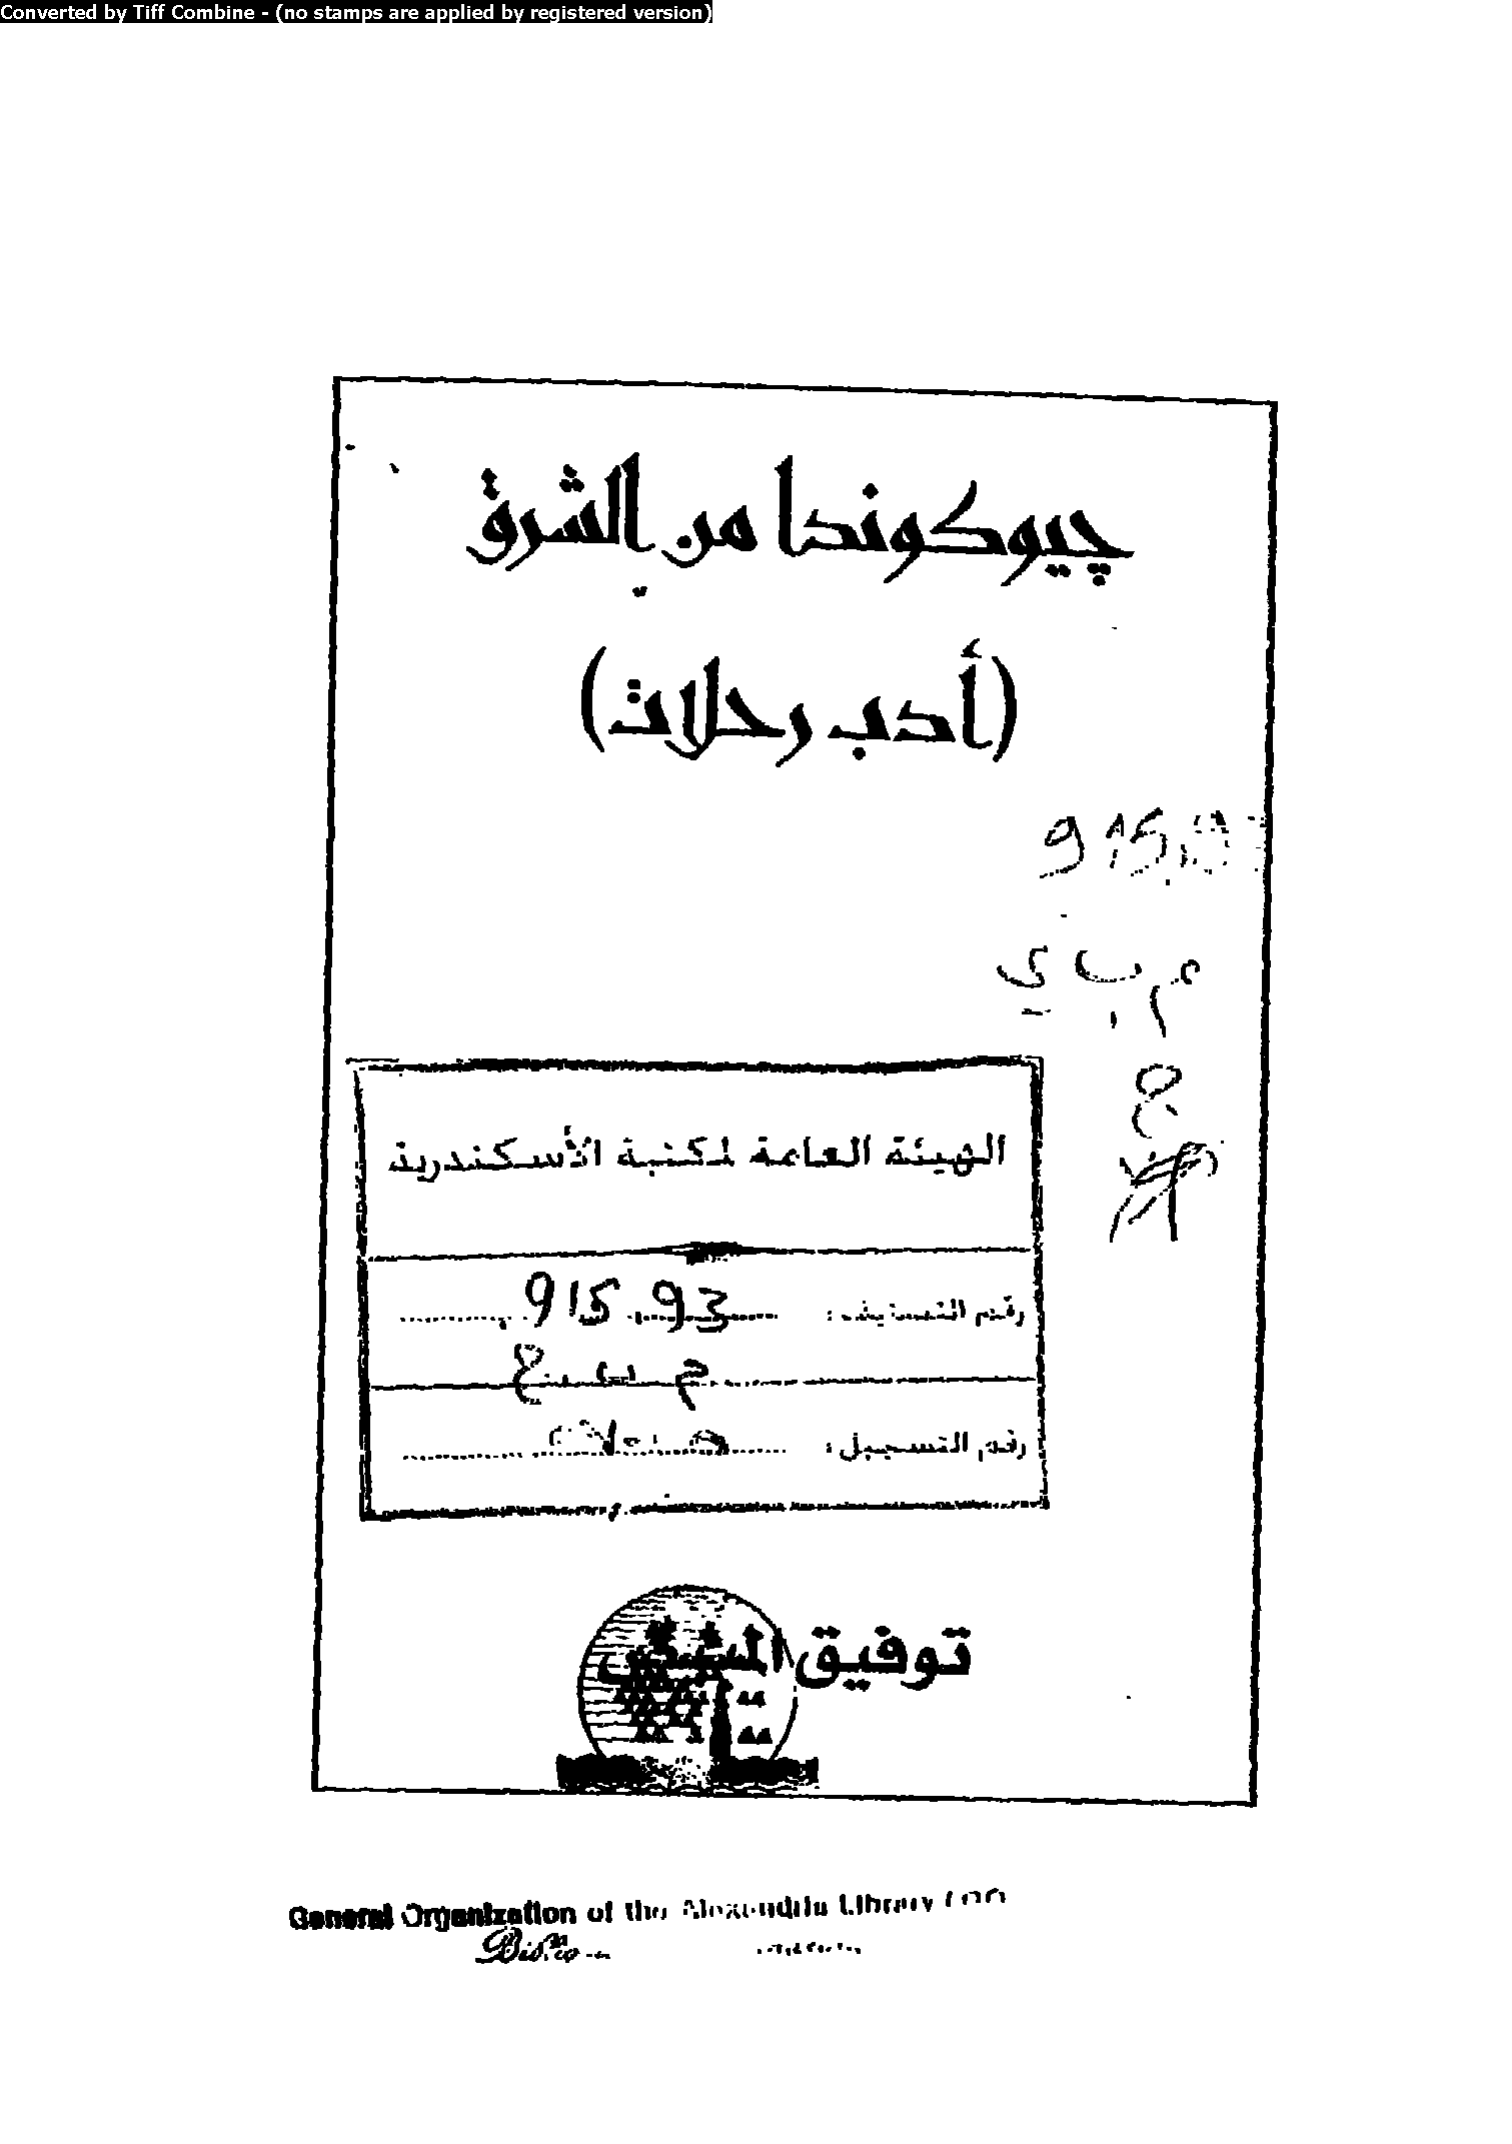 Converted by Tiff Combine - (no stamps are applied by registered version)
چيوكوندا من الشرق
(أدب رحلات)
915.93
الهيئة العامة لمكتبة الأسكندرية
رقم التصنيف: 915.93
رقم التسجيل:
توفيق
General Organization of the Alexandria Library